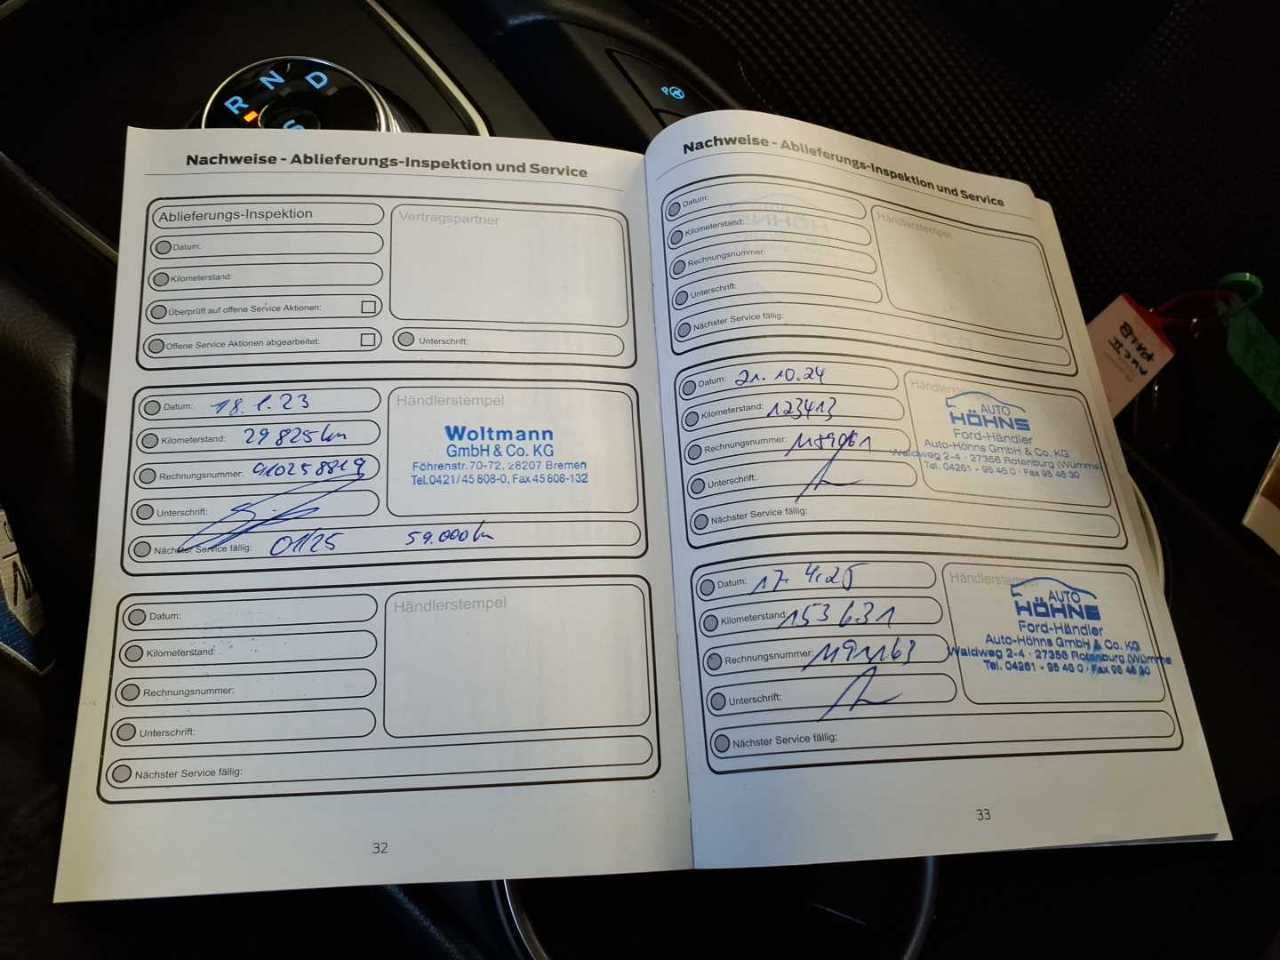 R N D
S
P
Nachweise - Ablieferungs-Inspektion und Service
Ablieferungs-Inspektion
Vertragspartner
Datum:
Kilometerstand:
Überprüft auf offene Service Aktionen:
Offene Service Aktionen abgearbeitet:
Unterschrift:
Datum: 18.1.23
Händlerstempel
Kilometerstand: 29825km
Woltmann
GmbH & Co. KG
Föhrenstr. 70-72, 28207 Bremen
Tel. 0421/45 808-0, Fax 45 808-132
Rechnungsnummer:
Unterschrift:
Nächster Service fällig: 01/25 59.000km
Datum:
Händlerstempel
Kilometerstand:
Rechnungsnummer:
Unterschrift:
Nächster Service fällig:
32
Nachweise - Ablieferungs-Inspektion und Service
Datum:
Händlerstempel
Kilometerstand:
Rechnungsnummer:
Unterschrift:
Nächster Service fällig:
Datum: 21.10.24
Händlerstempel
Kilometerstand: 123413
AUTO
HÖHNS
Ford-Händler
Auto-Höhns GmbH & Co. KG
Waldweg 2-4 · 27356 Rotenburg (Wümme
Tel. 04261 - 95 46 0 · Fax 95 46 30
Rechnungsnummer:
Unterschrift:
Nächster Service fällig:
Datum: 17.4.25
Händlerstempel
Kilometerstand: 153631
AUTO
HÖHNS
Ford-Händler
Auto-Höhns GmbH & Co. KG
Waldweg 2-4 · 27356 Rotenburg (Wümme
Tel. 04261 - 95 46 0 · Fax 95 46 30
Rechnungsnummer:
Unterschrift:
Nächster Service fällig:
33